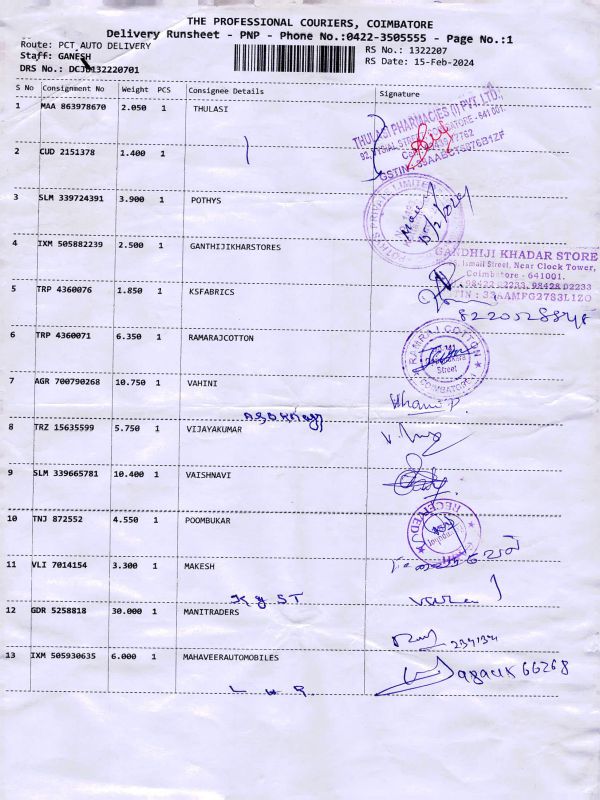 THE PROFESSIONAL COURIERS, COIMBATORE
Delivery Runsheet - PNP - Phone No.:0422-3505555 - Page No.:1
Route: PCT AUTO DELIVERY RS No.: 1322207
Staff: GANESH RS Date: 15-Feb-2024
DRS No.: DCJB132220701
S No Consignment No Weight PCS Consignee Details Signature
1 MAA 863978670 2.050 1 THULASI
THULASI PHARMACIES (I) PVT. LTD.,
2 CUD 2151378 1.400 1
3 SLM 339724391 3.900 1 POTHYS
15/2/2024
4 IXM 505882239 2.500 1 GANTHIJIKHARSTORES
GANDHIJI KHADAR STORE
Ismail Street, Near Clock Tower,
Coimbatore - 641001.
98422 - 2233, 98428 02233
5 TRP 4360076 1.850 1 KSFABRICS
6 TRP 4360071 6.350 1 RAMARAJCOTTON
RAMRAJ COTTON
Street
COIMBATORE
7 AGR 700790268 10.750 1 VAHINI
8 TRZ 15635599 5.750 1 VIJAYAKUMAR
9 SLM 339665781 10.400 1 VAISHNAVI
10 TNJ 872552 4.550 1 POOMBUKAR
RECEIVED
11 VLI 7014154 3.300 1 MAKESH
12 GDR 5258818 30.000 1 MANITRADERS
13 IXM 505930635 6.000 1 MAHAVEERAUTOMOBILES
66268